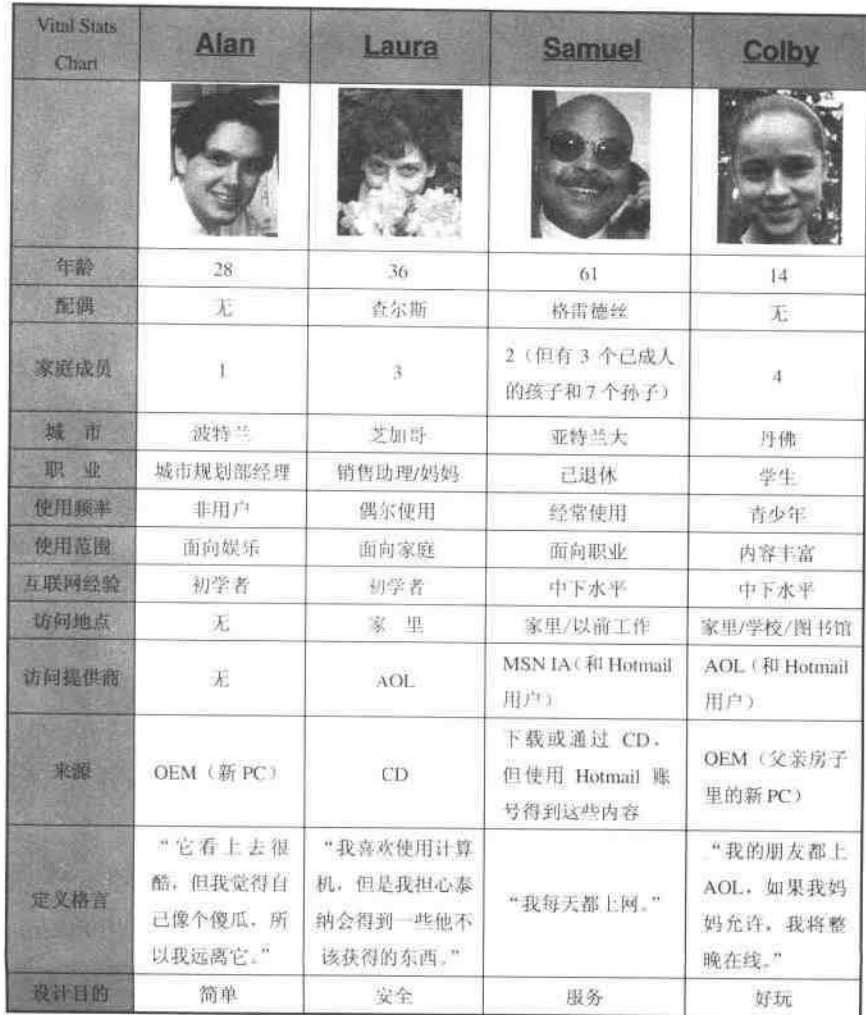 Vital Stats
Chart
Alan
Laura
Samuel
Colby
年龄
28
36
61
14
配偶
无
查尔斯
格雷德丝
无
家庭成员
1
3
2（但有 3 个已成人
的孩子和 7 个孙子）
4
城 市
波特兰
芝加哥
亚特兰大
丹佛
职 业
城市规划部经理
销售助理/妈妈
已退休
学生
使用频率
非用户
偶尔使用
经常使用
青少年
使用范围
面向娱乐
面向家庭
面向职业
内容丰富
互联网经验
初学者
初学者
中下水平
中下水平
访问地点
无
家 里
家里/以前工作
家里/学校/图书馆
访问提供商
无
AOL
MSN IA（和 Hotmail
用户）
AOL（和 Hotmail
用户）
来源
OEM（新 PC）
CD
下载或通过 CD，
但使用 Hotmail 账
号得到这些内容
OEM（父亲房子
里的新 PC）
定义格言
“它看上去很
酷，但我觉得自
己像个傻瓜，所
以我远离它。”
“我喜欢使用计算
机，但是我担心泰
纳会得到一些他不
该获得的东西。”
“我每天都上网。”
“我的朋友都上
AOL，如果我妈
妈允许，我将整
晚在线。”
设计目的
简单
安全
服务
好玩